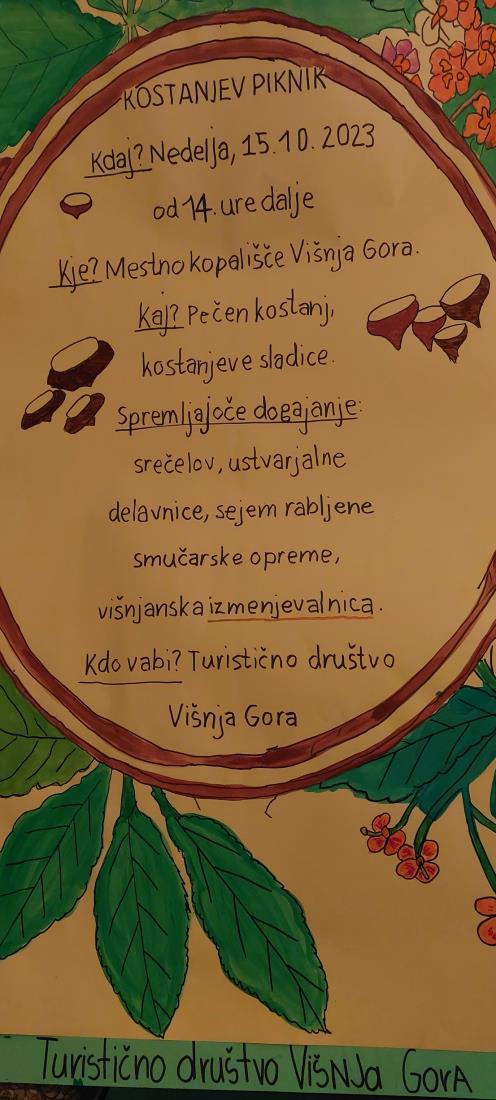 KOSTANJEV PIKNIK
Kdaj? Nedelja, 15.10.2023
od 14. ure dalje
Kje? Mestno kopališče Višnja Gora.
Kaj? Pečen kostanj,
kostanjeve sladice.
Spremljajoče dogajanje:
srečelov, ustvarjalne
delavnice, sejem rabljene
smučarske opreme,
višnjanska izmenjevalnica.
Kdo vabi? Turistično društvo
Višnja Gora
Turistično društvo VišNJa GorA